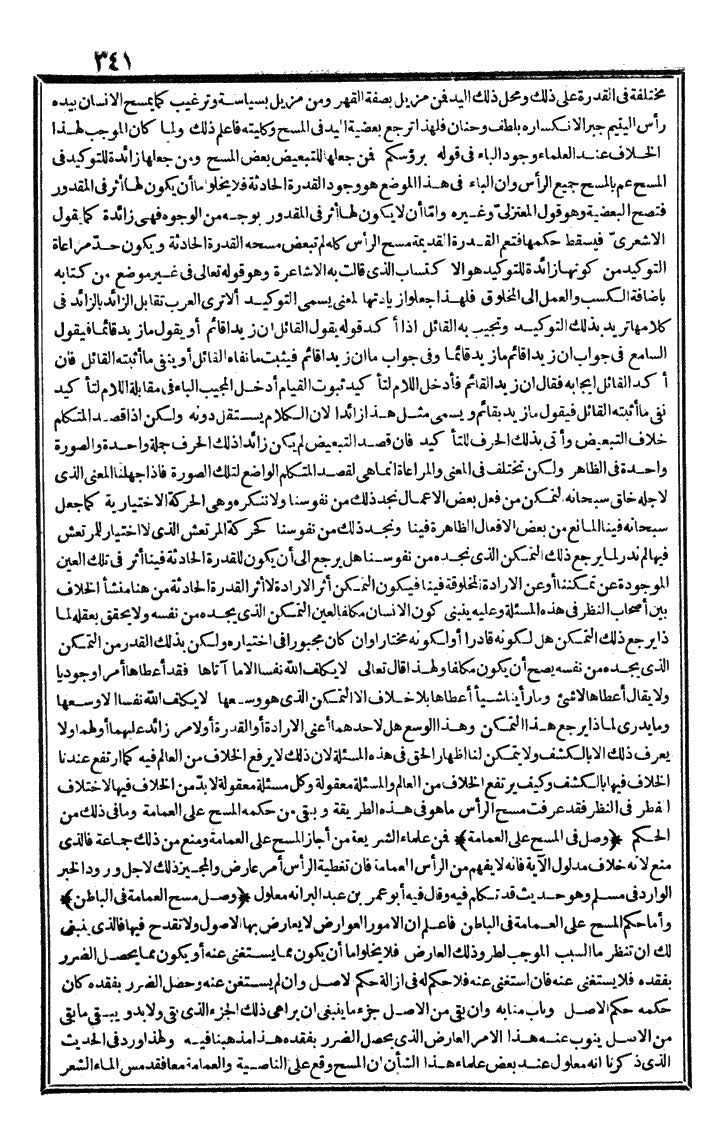 ٣٤١
مختلفة فى القدرة على ذلك ومحل ذلك اليد فمن مزيل بصفة القهر ومن مزيل بسياسة وترغيب كما يمسح الانسان بيده
رأس اليتيم جبر الانكساره بلطف وحنان فلهذا ترجع بعضية اليد فى المسح وكليته فاعلم ذلك ولما كان الموجب لهذا
الخلاف عند العلماء وجود الباء فى قوله برؤسكم فمن جعلها للتبعيض بعض المسح ومن جعلها زائدة للتوكيد فى
المسح عم بالمسح جميع الرأس وان الباء فى هذا الموضع هو وجود القدرة الحادثة فلا يخلو اما أن يكون لها أثر فى المقدور
فتصح البعضية وهو قول المعتزلىّ وغيره واما أن لا يكون لها أثر فى المقدور بوجه من الوجوه فهى زائدة كما يقول
الاشعرىّ فيسقط حكمها فتعم القدرة القديمة مسح الرأس كله لم تبعض مسحه القدرة الحادثة ويكون حدّ مراعاة
التوكيد من كونها زائدة للتوكيد هو الاكتساب الذى قالت به الاشاعرة وهو قوله تعالى فى غير موضع من كتابه
باضافة الكسب والعمل الى المخلوق فلهذا جعلوا زيادتها لمعنى يسمى التوكيد ألا ترى العرب تقابل الزائد بالزائد فى
كلامها تريد بذلك التوكيد وتجيب به القائل اذا أكد قوله يقول القائل ان زيدا قائم أو يقول ما زيد قائما فيقول
السامع فى جواب ان زيدا قائم ما زيد قائما وفى جواب ما ان زيدا قائم فيثبت ما نفاه القائل أو ينفى ما أثبته القائل فان
أكد القائل ايجابه فقال ان زيدا لقائم فأدخل اللام لتأكيد ثبوت القيام أدخل المجيب الباء فى مقابلة اللام لتأكيد
نفى ما أثبته القائل فيقول ما زيد بقائم ويسمى مثل هذا زائدا لان الكلام يستقل دونه ولكن اذا قصد المتكلم
خلاف التبعيض وأتى بذلك الحرف للتأكيد فان قصد التبعيض لم يكن زائدا ذلك الحرف جملة واحدة والصورة
واحدة فى الظاهر ولكن تختلف فى المعنى والمراعاة انما هى لقصد المتكلم الواضع لتلك الصورة فاذا جهلنا المعنى الذى
لاجله خلق سبحانه التمكن من فعل بعض الاعمال نجد ذلك من نفوسنا ولا ننكره وهى الحركة الاختيارية كما جعل
سبحانه فينا المانع من بعض الافعال الظاهرة فينا ونجد ذلك من نفوسنا كحركة المرتعش الذى لا اختيار للمرتعش
فيها لم ندر لما يرجع ذلك التمكن الذى نجده من نفوسنا هل يرجع الى أن يكون للقدرة الحادثة فينا أثر فى تلك العين
الموجودة عن تمكننا أو عن الارادة المخلوقة فينا فيكون التمكن أثر الارادة لا أثر القدرة الحادثة من هنا منشأ الخلاف
بين أصحاب النظر فى هذه المسئلة وعليه ينبنى كون الانسان مكلفا لعين التمكن الذى يجده من نفسه ولا يحقق بعقله لما
ذا يرجع ذلك التمكن هل لكونه قادرا أو لكونه مختارا وان كان مجبورا فى اختياره ولكن بذلك القدر من التمكن
الذى يجده من نفسه يصح أن يكون مكلفا ولهذا قال تعالى لا يكلف الله نفسا الا ما آتاها فقد أعطاها أمرا وجوديا
ولا يقال أعطاها لا شئ وما رأينا شيأ أعطاها بلا خلاف الا التمكن الذى هو وسعها لا يكلف الله نفسا الا وسعها
وما يدرى لما ذا يرجع هذا التمكن وهذا الوسع هل لاحدهما أعنى الارادة أو القدرة أو لامر زائد عليهما أو لهما ولا
يعرف ذلك الا بالكشف ولا يتمكن لنا اظهار الحق فى هذه المسئلة لان ذلك لا يرفع الخلاف من العالم فيه كما ارتفع عندنا
الخلاف فيها بالكشف وكيف يرتفع الخلاف من العالم والمسئلة معقولة وكل مسئلة معقولة لا بدّ من الخلاف فيها لاختلاف
الفطر فى النظر فقد عرفت مسح الرأس ما هو فى هذه الطريقة وبقى من حكمه المسح على العمامة وما فى ذلك من
الحكم ﴿وصل فى المسح على العمامة﴾ فمن علماء الشريعة من أجاز المسح على العمامة ومنع من ذلك جماعة فالذى
منع لانه خلاف مدلول الآية فانه لا يفهم من الرأس العمامة فان تغطية الرأس أمر عارض والمجيز ذلك لاجل ورود الخبر
الوارد فى مسلم وهو حديث قد تكلم فيه وقال فيه أبو عمر بن عبد البر انه معلول ﴿وصل مسح العمامة فى الباطن﴾
وأما حكم المسح على العمامة فى الباطن فاعلم ان الامور العوارض لا يعارض بها الاصول ولا تقدح فيها فالذى ينبغى
لك ان تنظر ما السبب الموجب لطرو ذلك العارض فلا يخلو اما أن يكون مما يستغنى عنه أو يكون مما يحصل الضرر
بفقده فلا يستغنى عنه فان استغنى عنه فلا حكم له فى ازالة حكم الاصل وان لم يستغن عنه وحصل الضرر بفقده كان
حكمه حكم الاصل وناب منابه وان بقى من الاصل جزء ما ينبغى ان يراعى ذلك الجزء الذى بقى ولا بد ويبقى ما بقى
من الاصل ينوب عنه هذا الامر العارض الذى يحصل الضرر بفقده هذا مذهبنا فيه ولهذا ورد فى الحديث
الذى ذكرنا انه معلول عند بعض علماء هذا الشأن ان المسح وقع على الناصية والعمامة معا فقد مس الماء الشعر